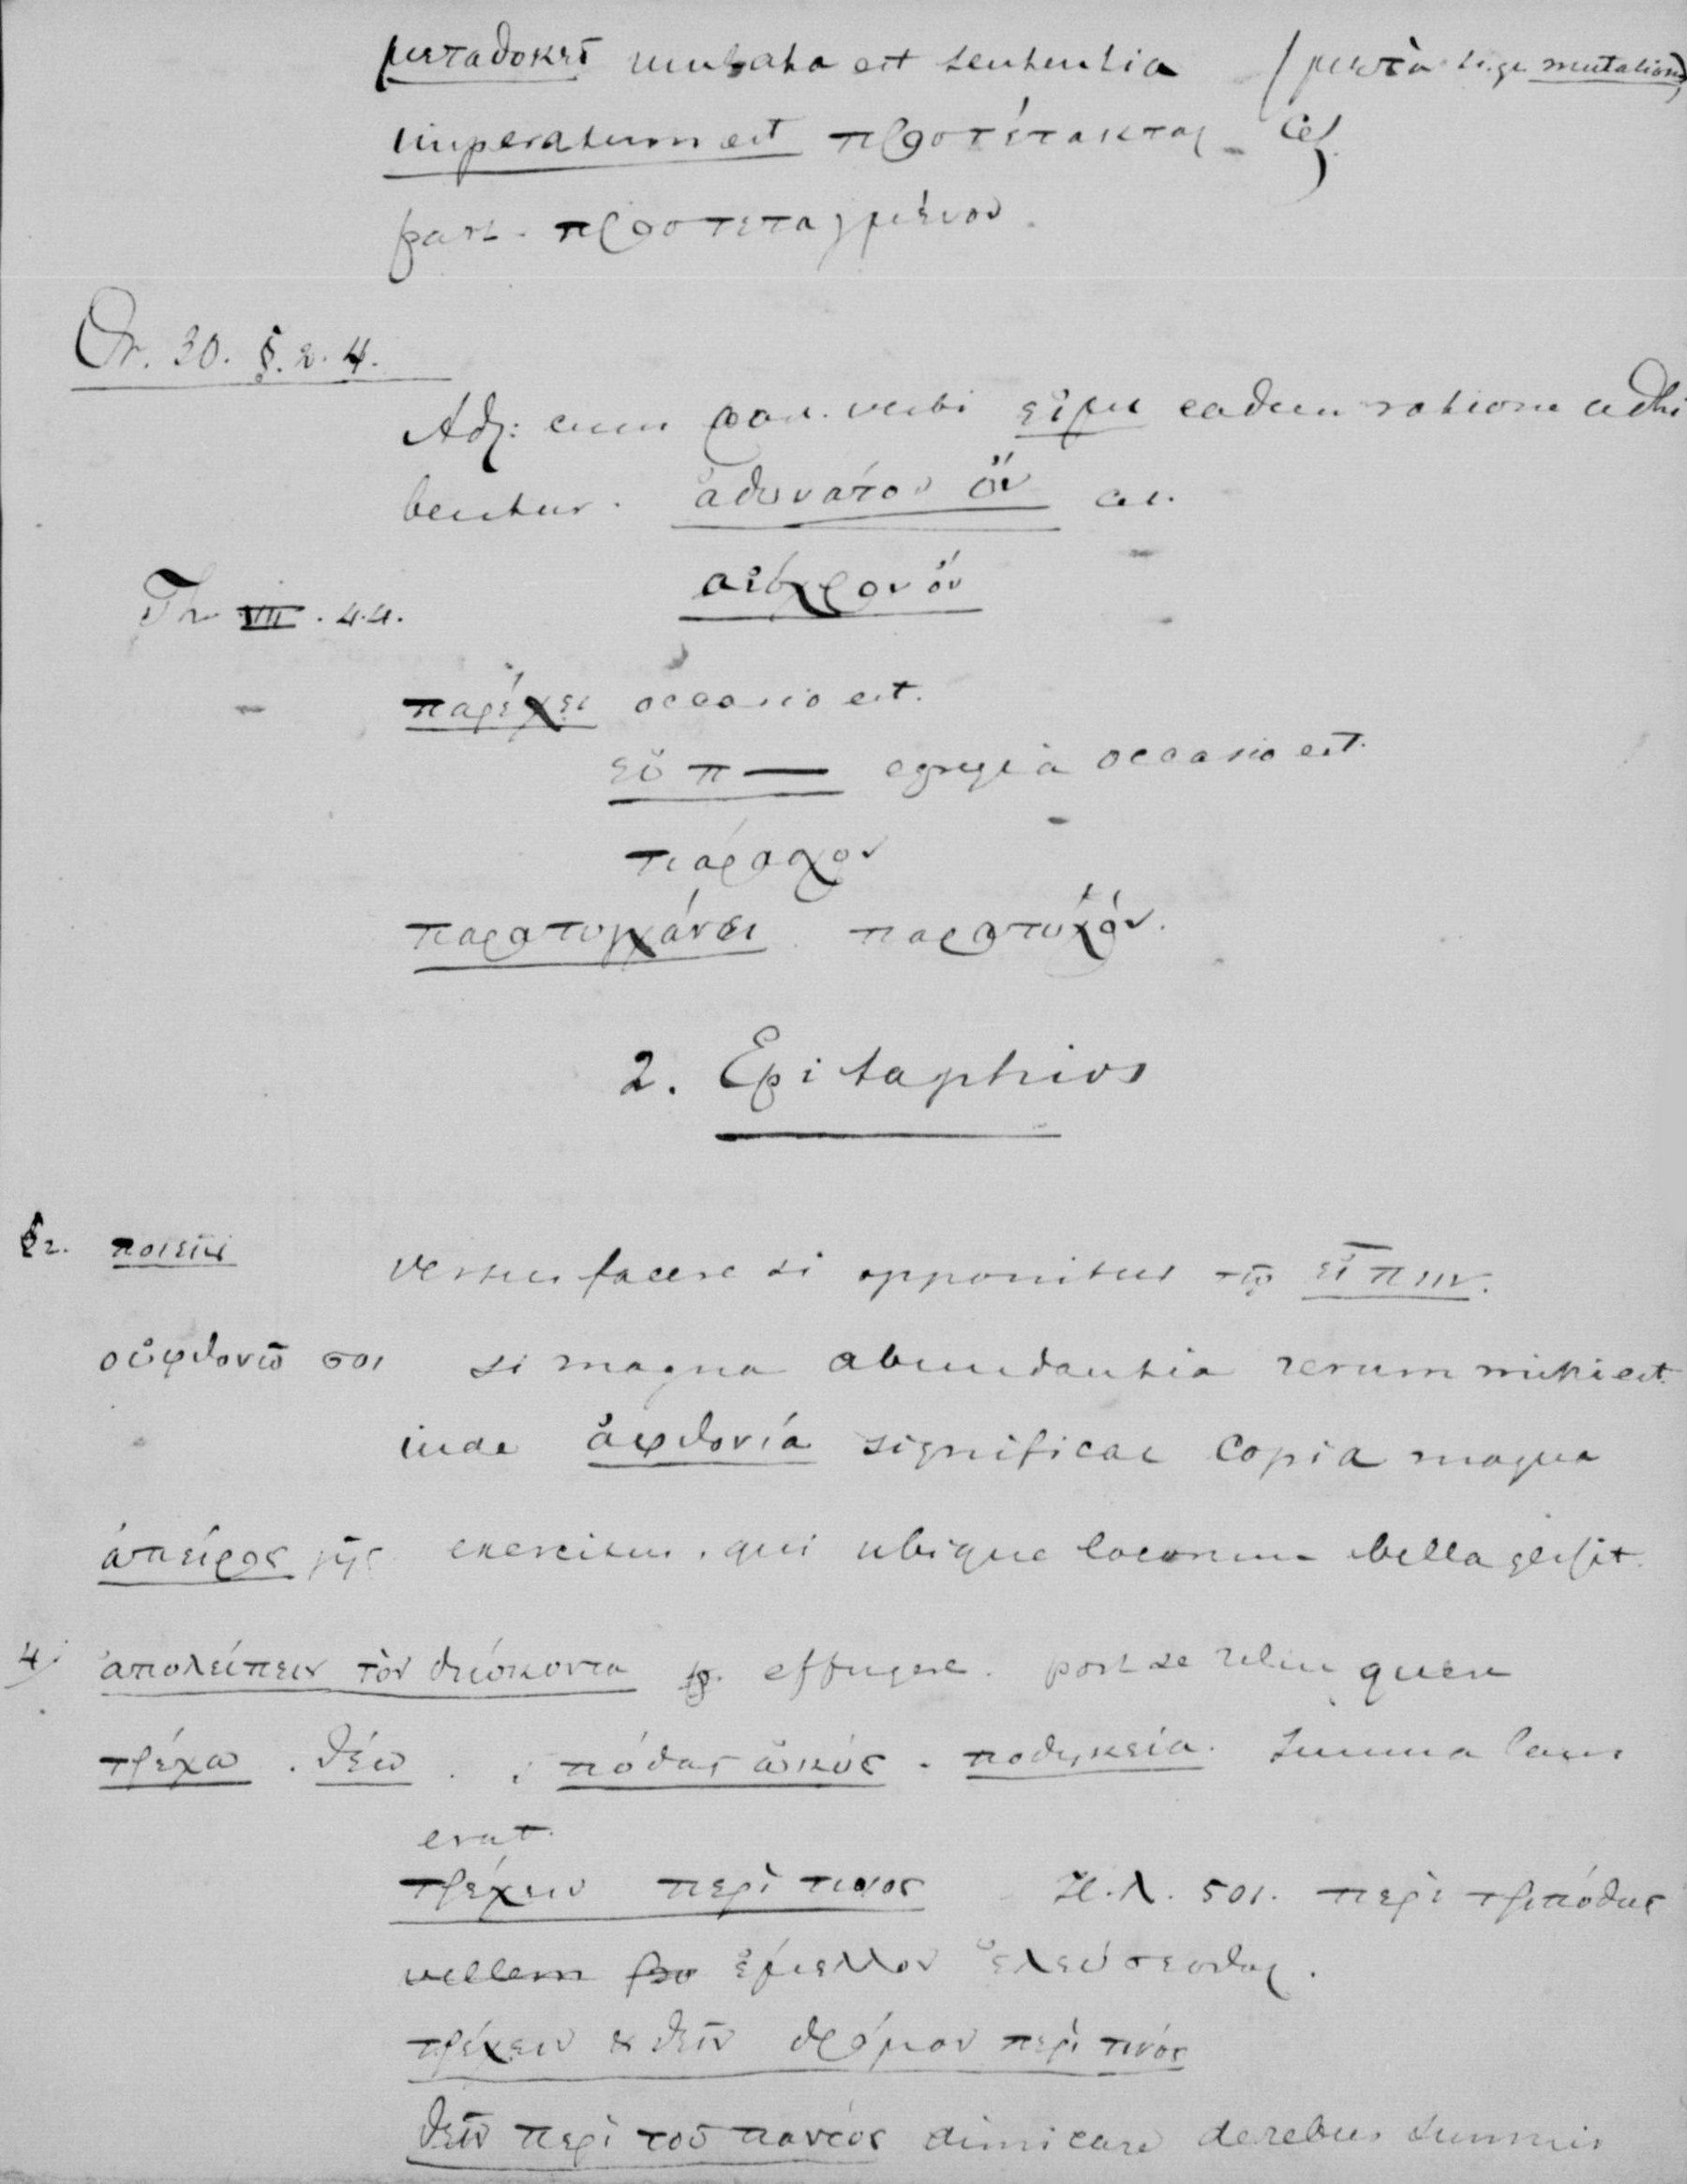 μεταδοκεῖ mutata est sententia (μετὰ sign mutationis)
imperatum est προστέτακται cet.
part. προστεταγμένον.
Or. 30. §. 2. 4.
Adj: cum part. verbi εἰμι eadem ratione adhi
bentur. ἀδυνάτον ὄν cet.
αἰσχρον ὄν
Th VIII. 44.
παρέχει occasio est.
εὖ π— egregia occasio est.
παράσχον
παρατυγχάνει παρατυχόν.
2. Epitaphios
§2. ποιεῖν versus facere si opponitur τῷ εἰπῖν.
οὐφθονῶ σοι si magna abundantia rerum mihi est.
inde ἀφθονία significat copia magna
ἀπείρος γῆς exercitus, qui ubique locorum bella gessit.
4) ἀπολείπειν τὸν διώκοντα effugere. post se relinquere
τρέχω. θέω. πόδας ὠκύς. ποδωκεία. summa laus
erat.
τρέχειν περὶ τινος Il. Λ. 501. περὶ τρίποδος
vellem ἔμελλον ἐλεύσεσθαι.
τρέχειν & θεῖν δρόμον περὶ τινός
θεῖν περὶ τοῦ παντός dimicare de rebus summis